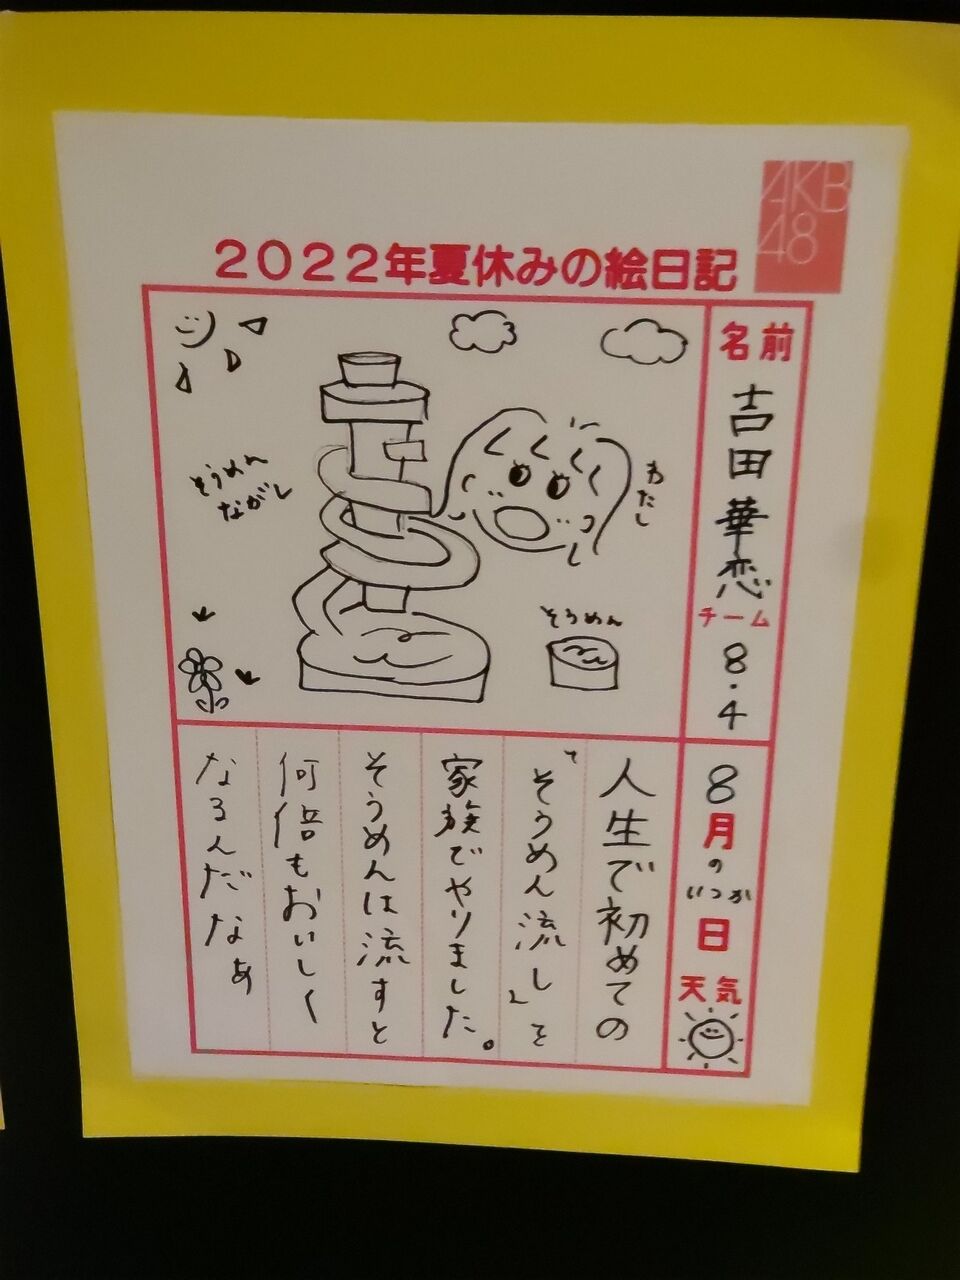 AKB
48
2022年夏休みの絵日記
名前
吉田華恋
チーム
8・4
8月のいつか日
天気
そうめん
ながし
わたし
そうめん
人生で初めての
「そうめん流し」を
家族でやりました。
そうめんは流すと
何倍もおいしく
なるんだなぁ